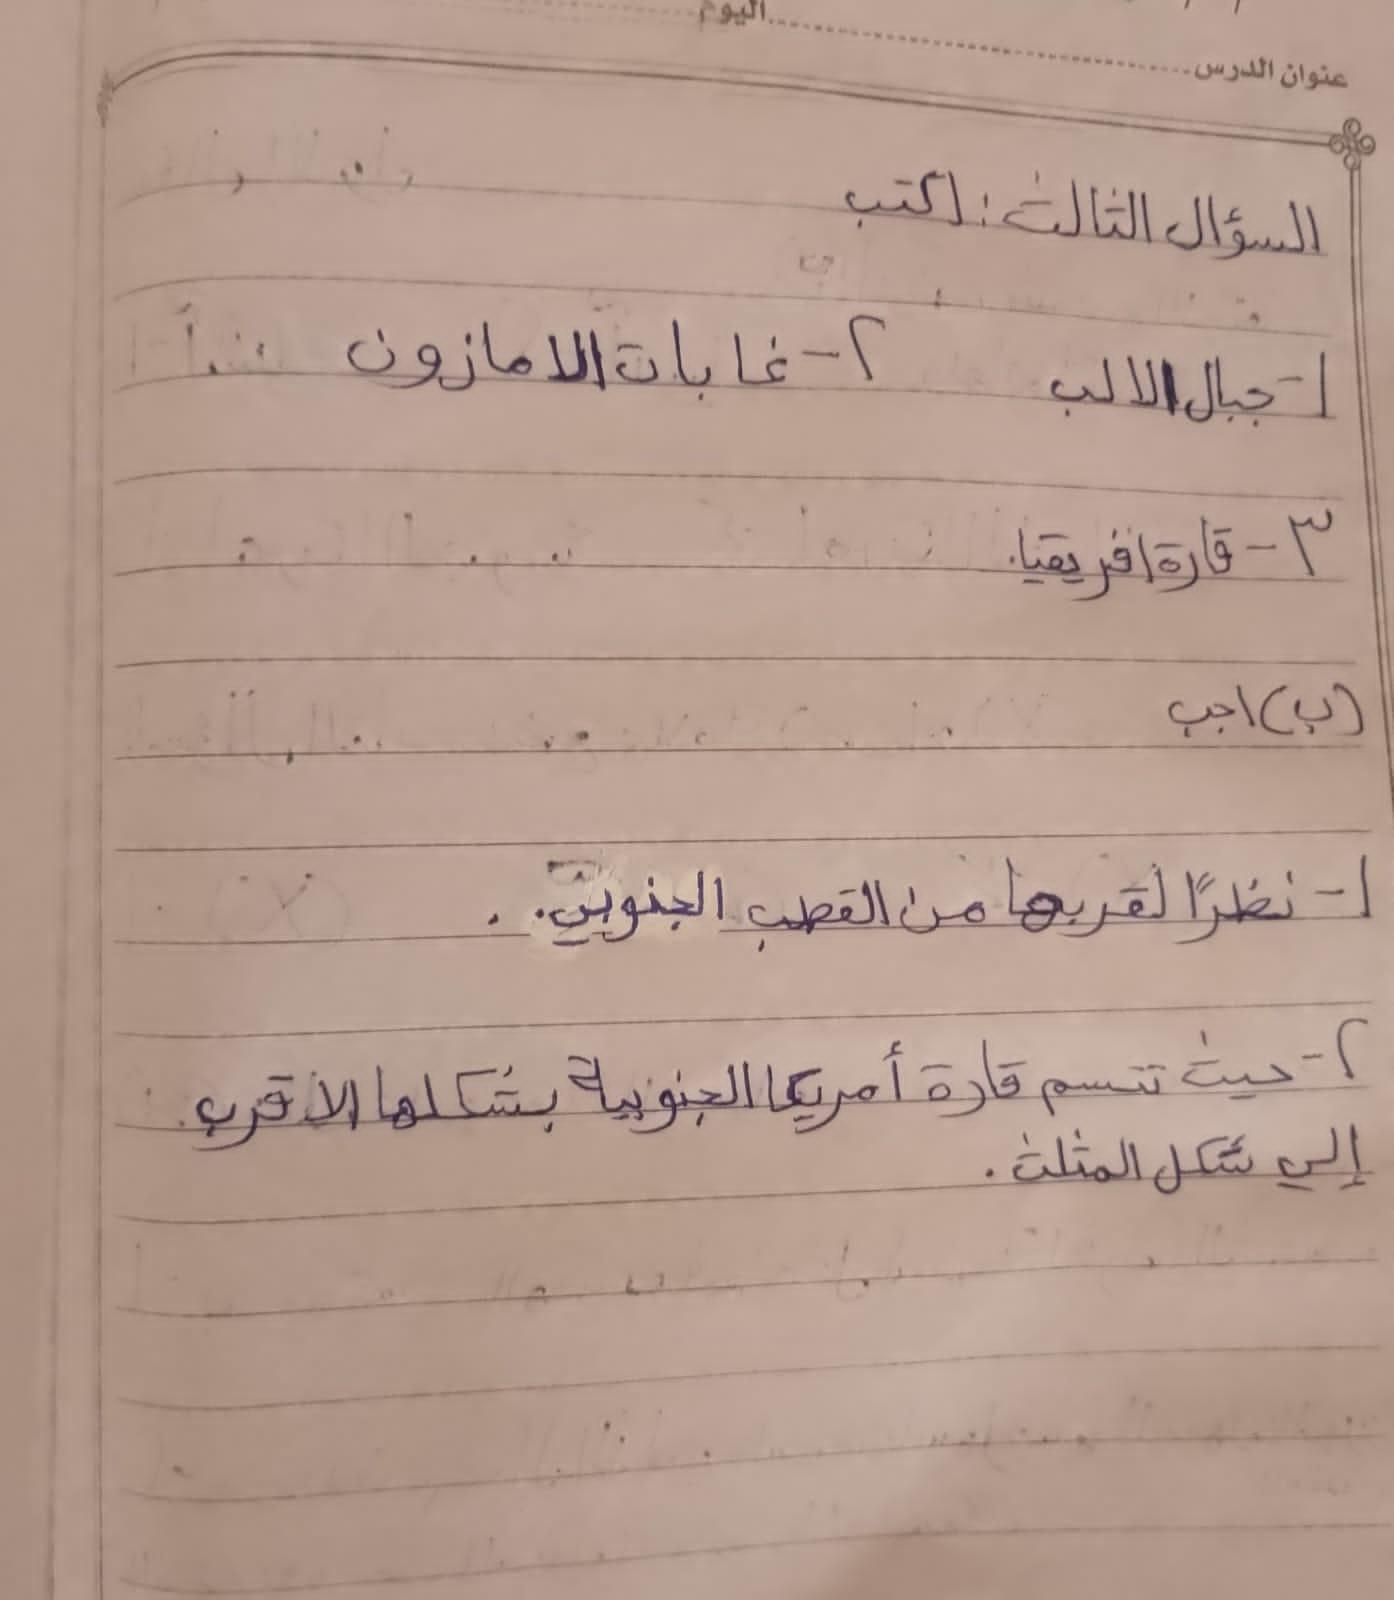 اليوم
عنوان الدرس
السؤال الثالث : اكتب
١- جبال الالب ٢- غابات الامازون
٣- قارة افريقيا.
(ب) اجب
١- نظرًا لقربها من القطب الجنوبي. .
٢- حيث تتسم قارة أمريكا الجنوبية بشكلها الاقرب
إلي شكل المثلث .